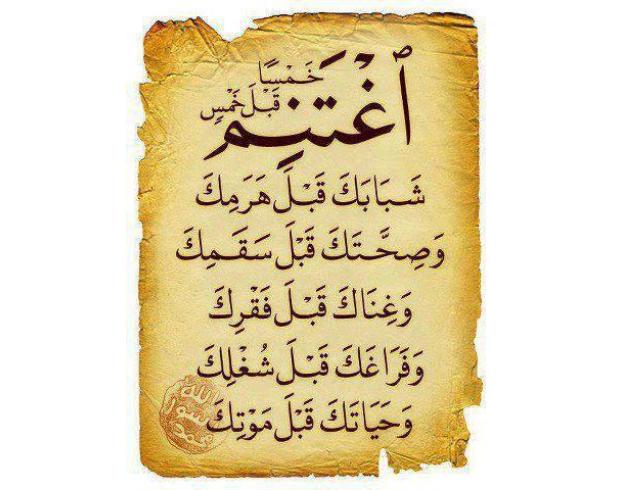 ٱغْتَنِمْ خَمْسًا قَبْلَ خَمْسٍ
شَبَابَكَ قَبْلَ هَرَمِكَ
وَصِحَّتَكَ قَبْلَ سَقَمِكَ
وَغِنَاكَ قَبْلَ فَقْرِكَ
وَفَرَاغَكَ قَبْلَ شُغْلِكَ
وَحَيَاتَكَ قَبْلَ مَوْتِكَ
الله
رسول
محمد